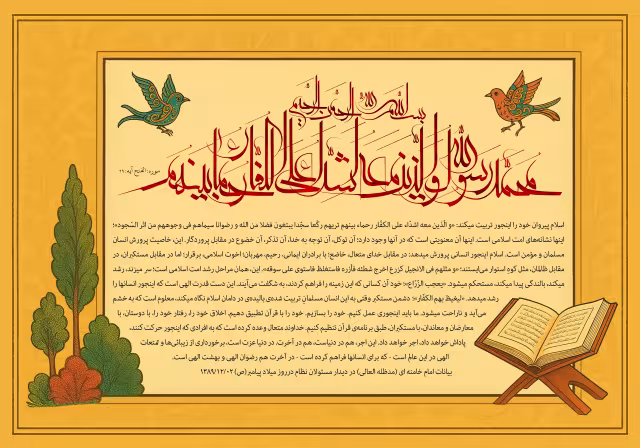 بسم الله الرحمن الرحیم
محمد رسول الله والذین معه اشداء علی الکفار رحماء بینهم
سوره: الفتح آیه: ۲۹
اسلام پیروان خود را اینجور تربیت میکند: «و الّذین معه اشدّاء علی الکفّار رحماء بینهم تریهم رکّعا سجّدا یبتغون فضلا من الله و رضوانا سیماهم فی وجوههم من اثر السّجود»؛
اینها نشانه‌های امت اسلامی است. اینها آن معنویتی است که در آنها وجود دارد؛ آن توکل، آن توجه به خدا، آن تذکر، آن خضوع در مقابل پروردگار. این، خاصیت پرورش انسان
مسلمان و مؤمن است. اسلام اینجور انسانی پرورش میدهد: در مقابل خدای متعال، خاضع؛ با برادران ایمانی، رحیم، مهربان؛ اخوت اسلامی، برقرار؛ اما در مقابل مستکبران، در
مقابل ظالمان، مثل کوه استوار می‌ایستند؛ «و مثلهم فی الانجیل کزرع اخرج شطئه فآزره فاستغلظ فاستوی علی سوقه». این، همان مراحل رشد امت اسلامی است؛ سر میزند، رشد
میکند، بالندگی پیدا میکند، مستحکم میشود. «یعجب الزّرّاع»؛ خود آن کسانی که این زمینه را فراهم کردند، به شگفت می‌آیند. این دست قدرت الهی است که اینجور انسانها را
رشد میدهد. «لیغیظ بهم الکفّار»؛ دشمن مستکبر وقتی به این انسان مسلمانِ تربیت شده‌ی بالیده‌ی در دامان اسلام نگاه میکند، معلوم است که به خشم
می‌آید و ناراحت میشود. ما باید اینجوری عمل کنیم. خود را بسازیم. خود را با قرآن تطبیق دهیم. اخلاق خود را، رفتار خود را، با دوستان، با
معارضان و معاندان، با مستکبران، طبق برنامه‌ی قرآن تنظیم کنیم. خداوند متعال وعده کرده است که به افرادی که اینجور حرکت کنند،
پاداش خواهد داد، اجر خواهد داد. این اجر، هم در دنیاست، هم در آخرت. در دنیا عزت است، برخورداری از زیبائی‌ها و تمتعات
الهی در این عالم است - که برای انسانها فراهم کرده است - در آخرت هم رضوان الهی و بهشت الهی است.
بیانات امام خامنه ای (مدظله العالی) در دیدار مسئولان نظام در روز میلاد پیامبر (ص) ۱۳۸۹/۱۲/۰۲